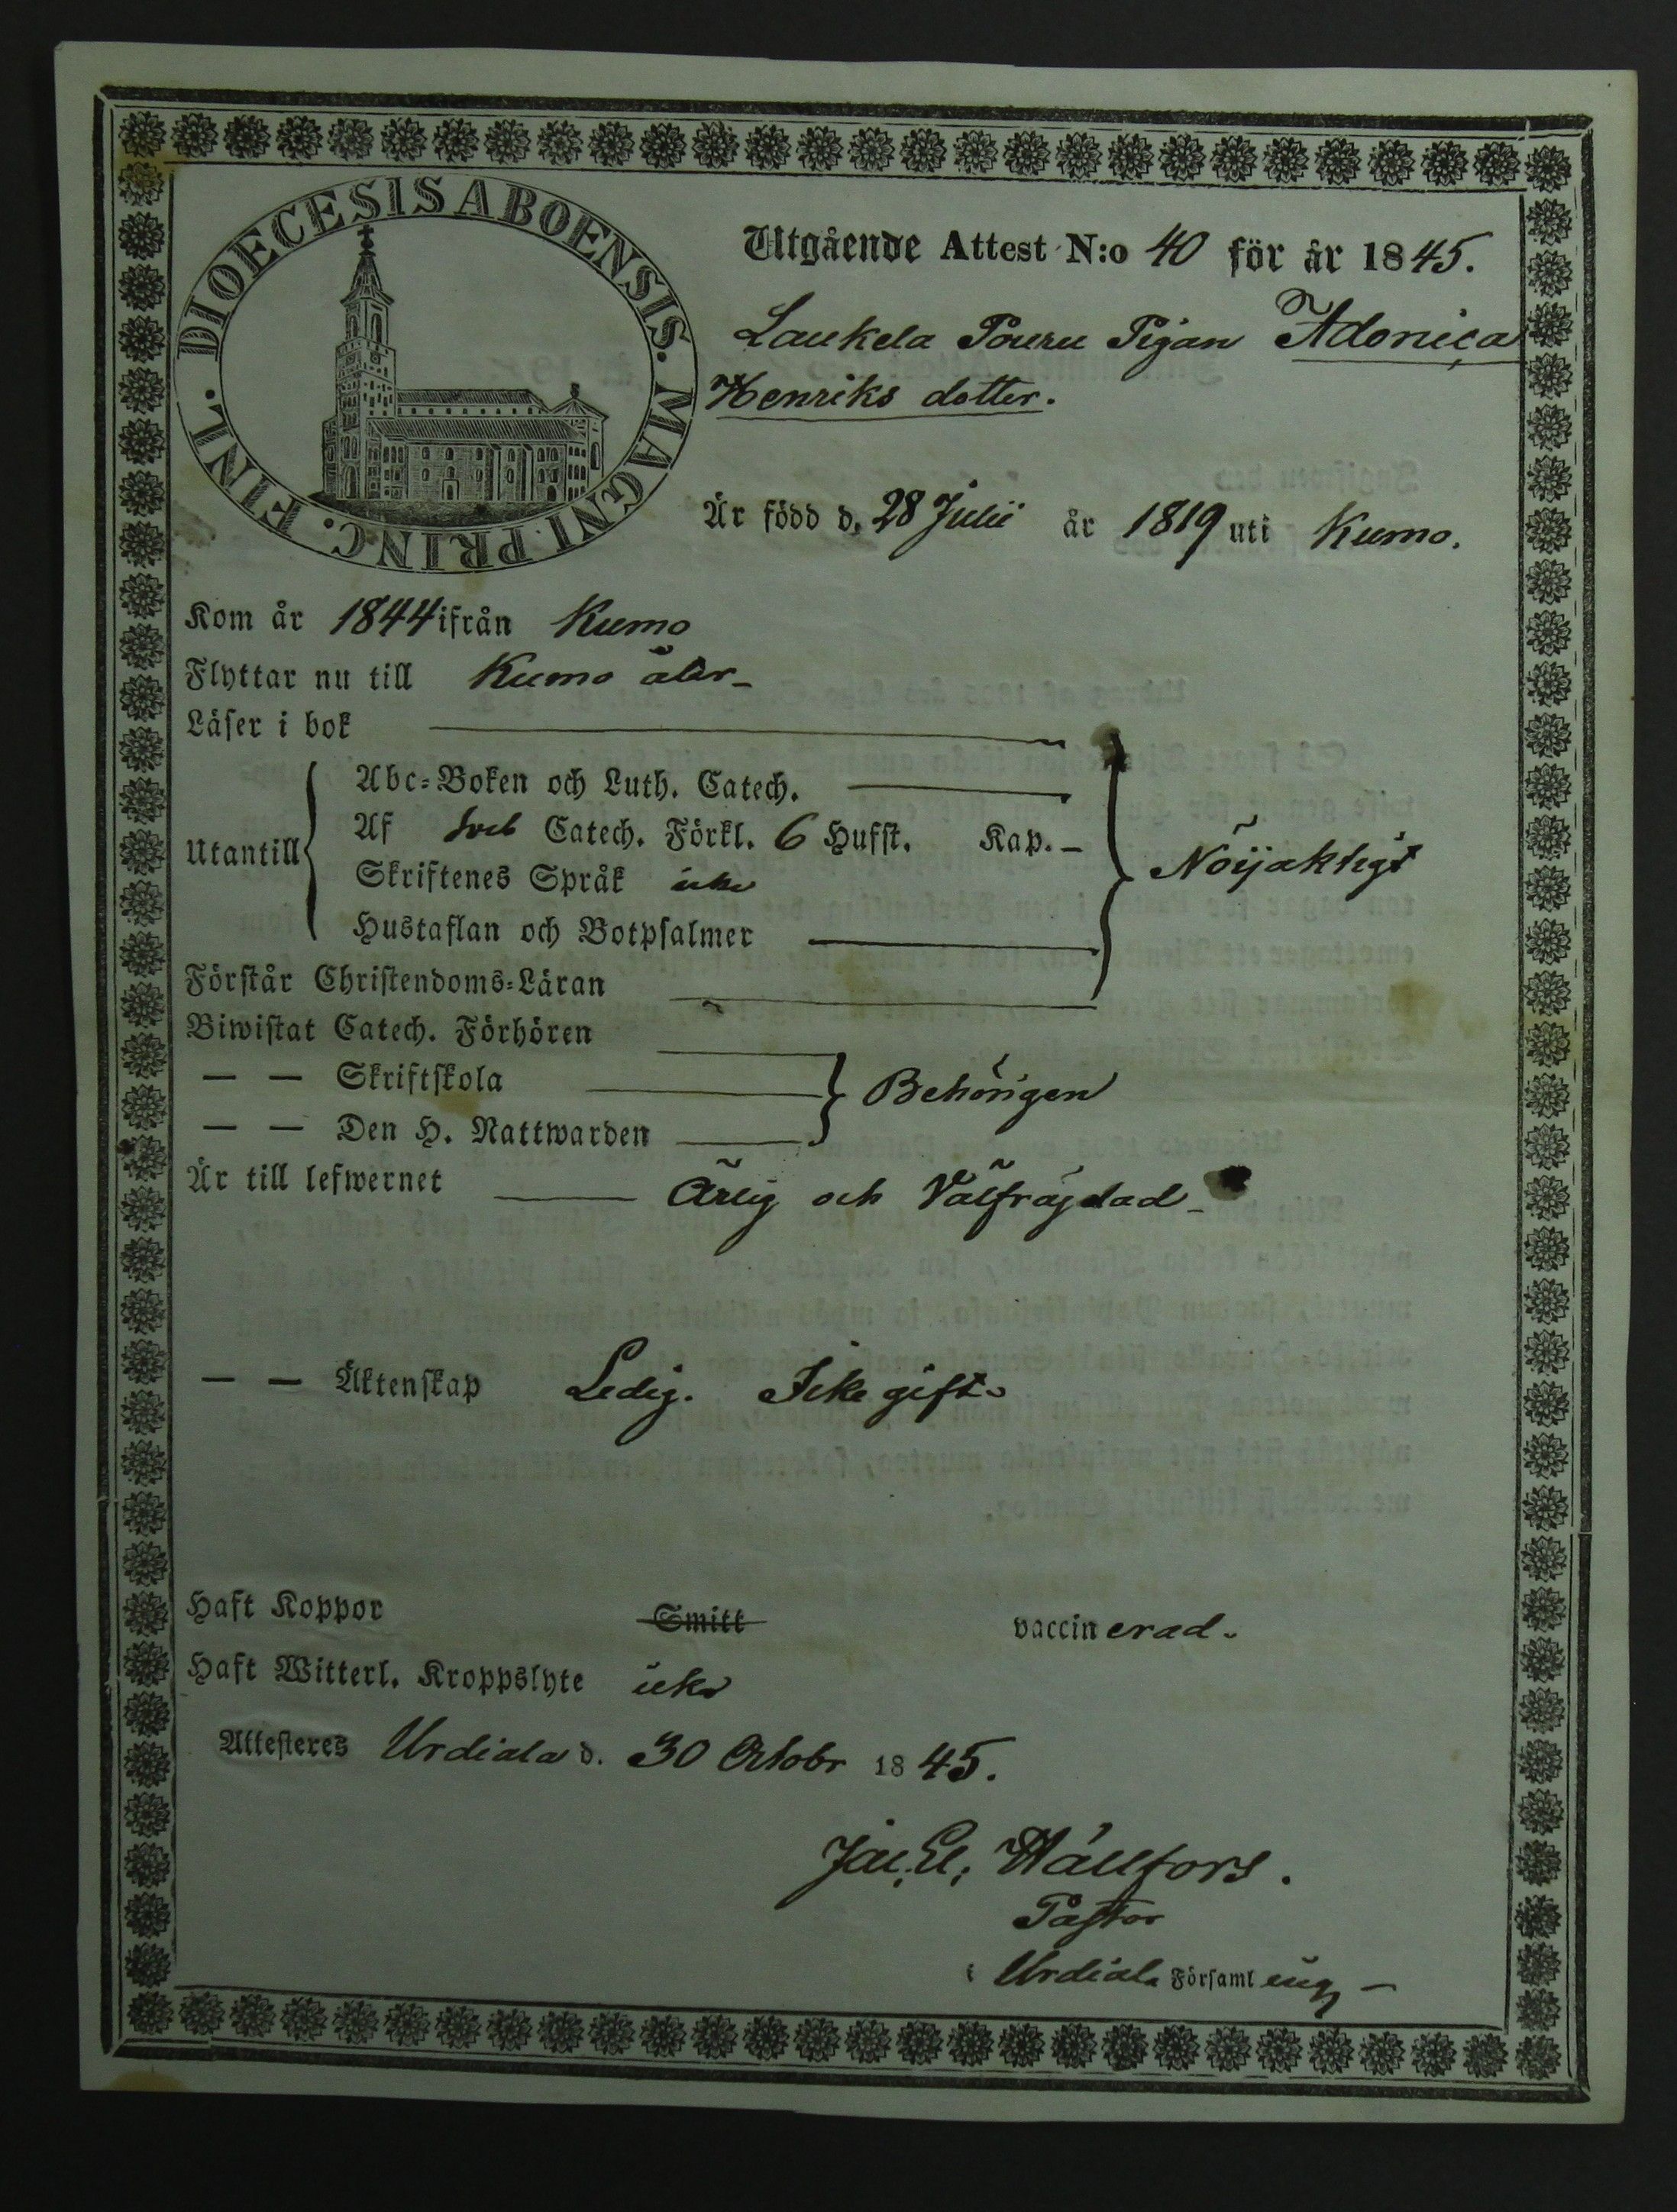 DIOECESIS ABOENSIS. MAGNI PRINC. FINL.
Utgående Attest N:o 40 för år 1845.
Laukela Pouru Pigan Adoniça
Henriks dotter.
Är född d. 28 Julii år 1819 uti Kumo.
Kom år 1844 ifrån Kumo
Flyttar nu till Kumo åter
Läser i bok
Abc-Boken och Luth. Catech.
Af Sveb Catech. Förkl. 6 Hufst. Kap. –
Utantill
Nöijaktigt
Skriftenes Språk icke
Hustaflan och Botpsalmer
Förstår Christendoms-Läran
Biwistat Catech. Förhören
— — Skriftskola
Behörigen
— — Den H. Nattwarden
Är till lefwernet Ärlig och Välfrägdad
— — Äktenskap Ledig. Icke gift.
Haft Koppor Smitt vaccinerad.
Haft Witterl. Kroppslyte icke
Attesteres Urdiala d. 30 Octobr 1845.
Jac. El. Wällfors.
Pastor
i Urdiala Församling